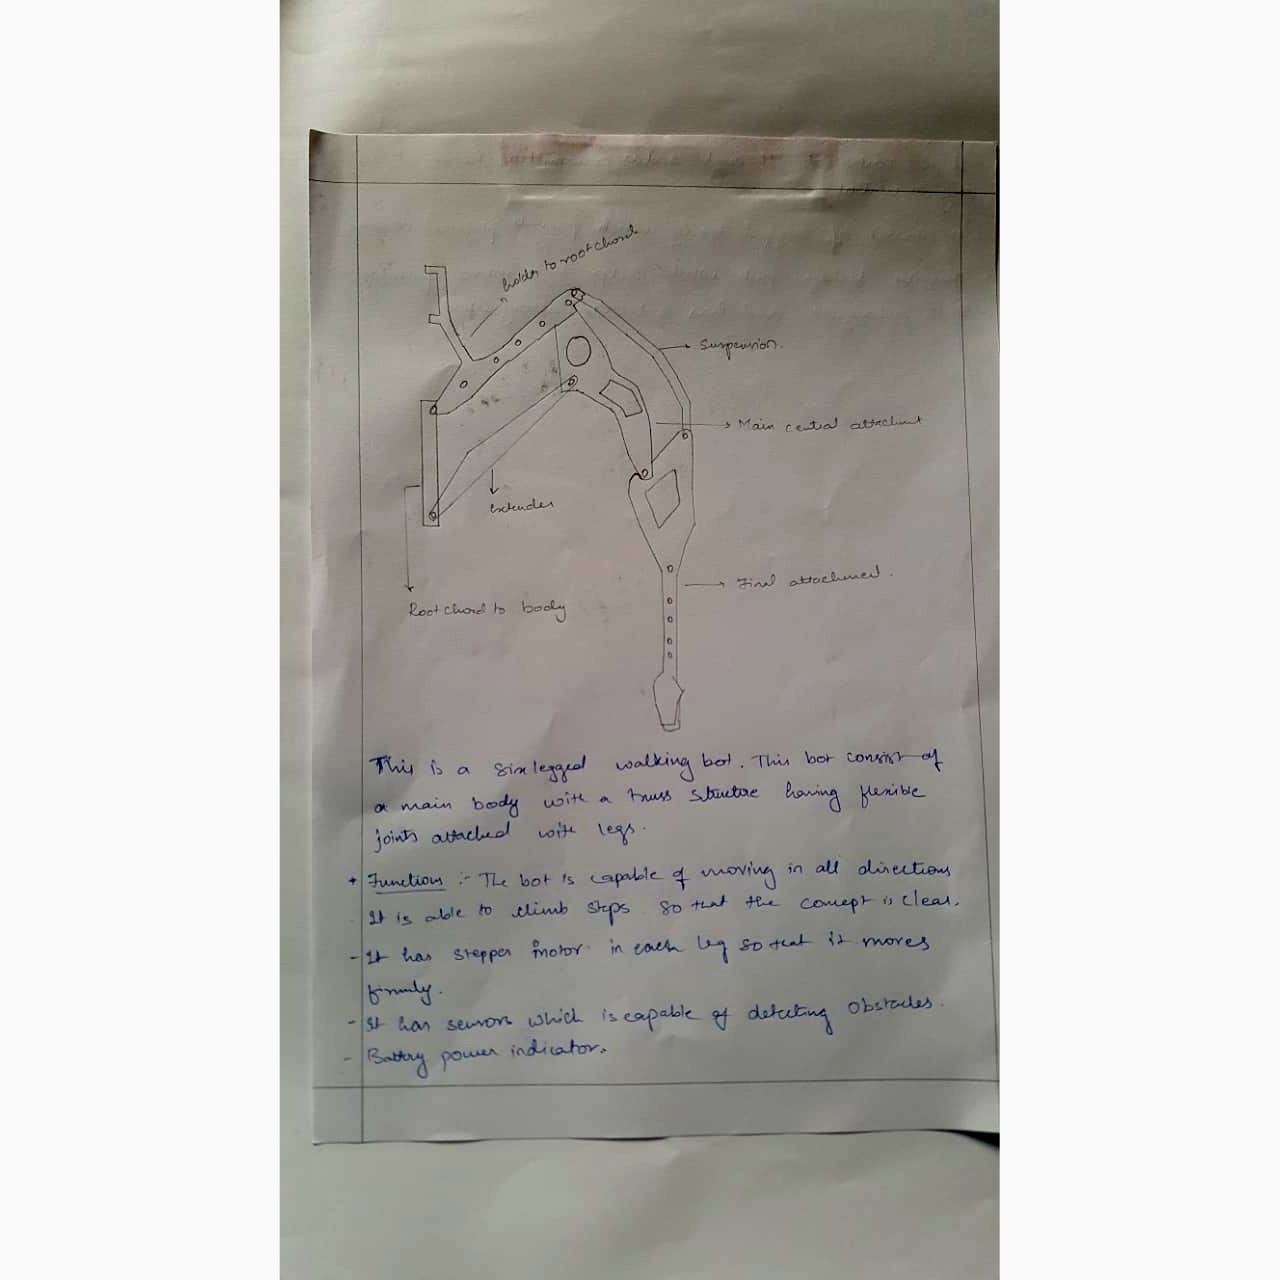 holder to root chord
Suspension.
Main central attachment
extender
Final attachment.
Root chord to body
This is a six legged walking bot. This bot consist of
a main body with a truss structure having flexible
joints attached with legs.
+ Functions :- The bot is capable of moving in all directions
- It is able to climb steps so that the concept is clear.
- It has stepper motor in each leg so that it moves
firmly.
- It has sensors which is capable of detecting obstacles.
- Battery power indicator.